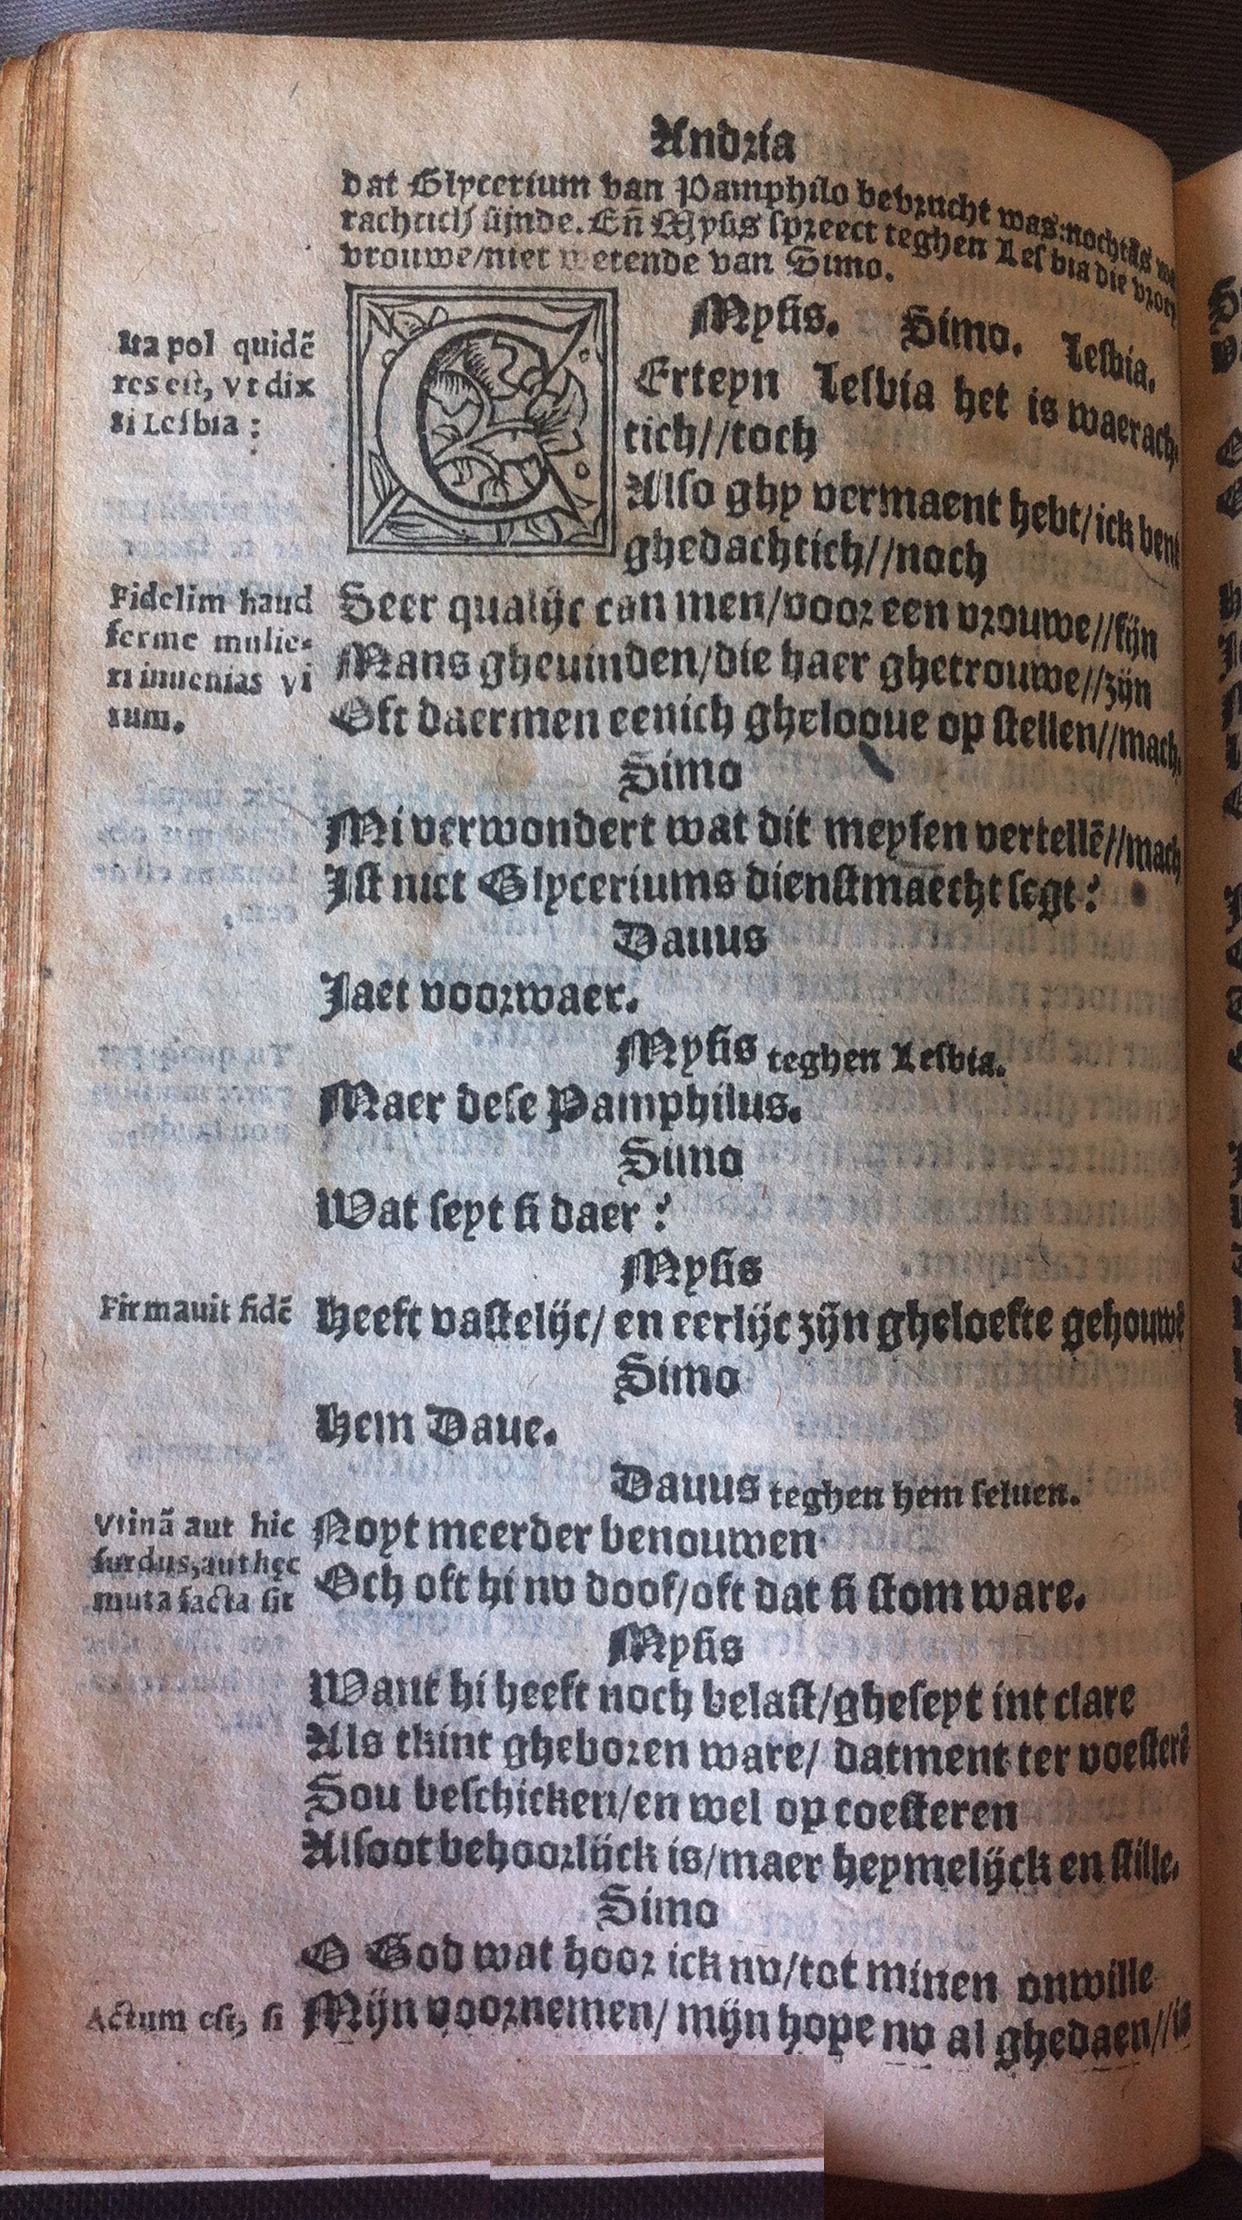 Andria
dat Glycerium van Pamphilo bevrucht was: nochtãs
rachtich sijnde. Eñ Mysis spreect teghen Lesbia die vroey
vrouwe/niet wetende van Simo.
Mysis. Simo. Lesbia.
Ita pol quidẽ
res est, vt dix
ti Lesbia :
CErteyn Lesbia het is waerach,
tich//toch
Also ghy vermaent hebt/ick bent
ghedachtich//noch
Fidelim haud
ferme mulie-
ri inuenias vi
rum.
Seer qualijc can men/voor een vrouwe//fijn
Mans gheuinden/die haer ghetrouwe//zijn
Oft daermen eenich ghelooue op stellen//mach.
Simo
Mi verwondert wat dit meysen vertellẽ//mach
Ist niet Glyceriums dienstmaecht segt?
Dauus
Jaet voorwaer.
Mysis teghen Lesbia.
Maer dese Pamphilus.
Simo
Wat seyt si daer?
Mysis
Firmauit fidẽ
Heeft vastelijc/ en eerlijc zijn gheloefte gehouwẽ
Simo
Hem Daue.
Dauus teghen hem seluen.
Vtinã aut hic
surdus, aut hęc
muta facta sit
Noyt meerder benouwen
Och oft hi nv doof/oft dat si stom ware.
Mysis
Want hi heeft noch belast/gheseyt int clare
Als tkint gheboren ware/ datment ter voesterẽ
Sou beschicken/en wel op coesteren
Alsoot behoorlijck is/maer heymelijck en stille.
Simo
O God wat hoor ick nv/tot minen onwille
Actum est, si
Mijn voornemen/ mijn hope nv al ghedaen//is